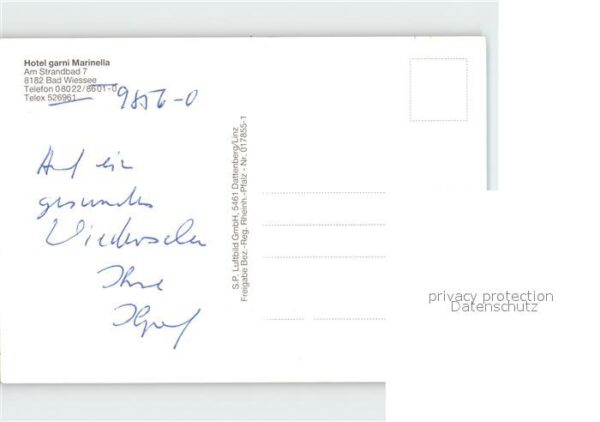 Hotel garni Marinella
Am Strandbad 7
8182 Bad Wiessee
Telefon 08022/8601-0
Telex 526961
9856-0
Auf ein
gesundes
Wiedersehen
Ihre
S.P. Luftbild GmbH, 5461 Dattenberg/Linz
Freigabe Bez.-Reg. Rheinh.-Pfalz - Nr. 017855-1
privacy protection
Datenschutz